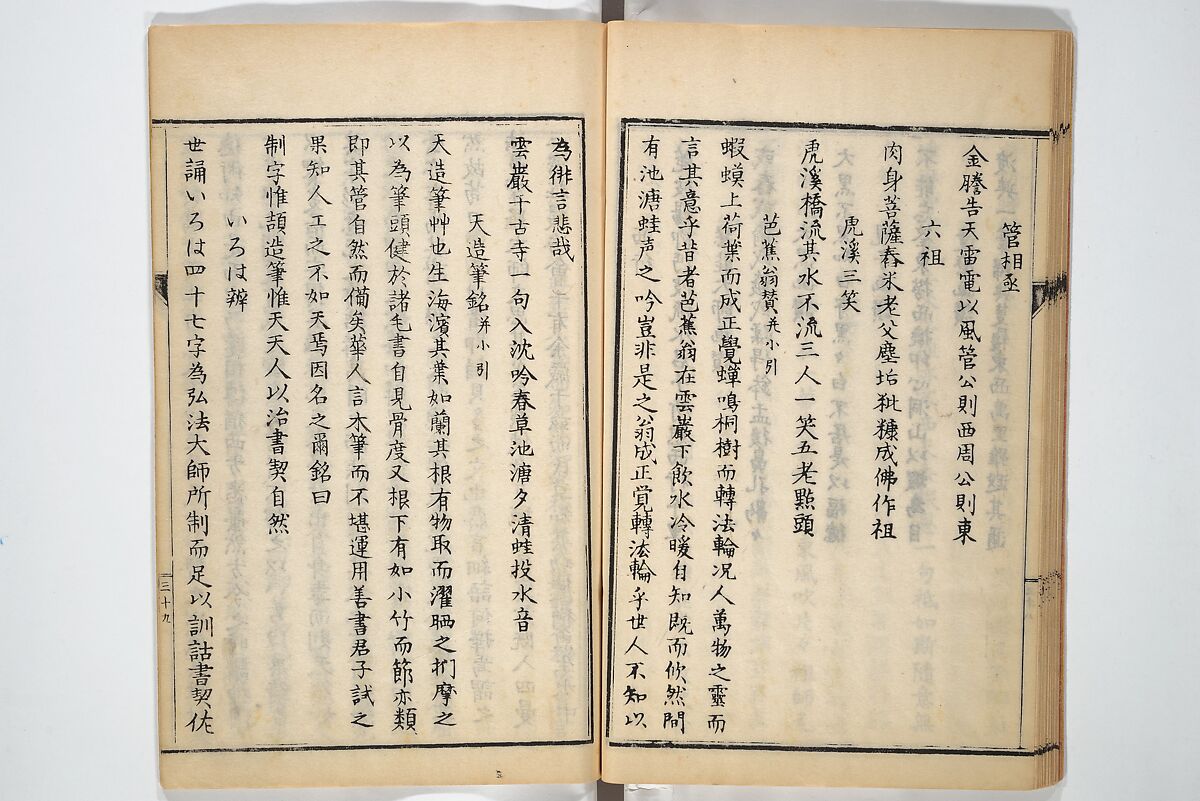 管相丞
金縢告天雷電以風管公則西周公則東
六祖
肉身菩薩舂米老父塵垢秕糠成佛作祖
虎溪三笑
虎溪橋流其水不流三人一笑五老點頭
芭蕉翁賛并小引
蝦蟆上荷葉而成正覺蟬鳴桐樹而轉法輪况人萬物之靈而
言其意乎昔者芭蕉翁在雲巖下飲水冷暖自知既而佽然聞
有池溏蛙声之吟豈非是之翁成正覚轉法輪乎世人不知以
為徘言悲哉
雲巖千古寺一句入沈吟春草池溏夕清蛙投水音
天造筆銘并小引
天造筆艸也生海濱其葉如蘭其根有物取而濯晒之捫摩之
以為筆頭健於諸毛書自見骨度又根下有如小竹而節亦類
即其管自然而俻矣華人言木筆而不堪運用善書君子試之
果知人工之不如天焉因名之爾銘曰
制字惟頡造筆惟天天人以治書契自然
いろは辨
世誦いろは四十七字為弘法大師所制而足以訓詁書契佐
三十九